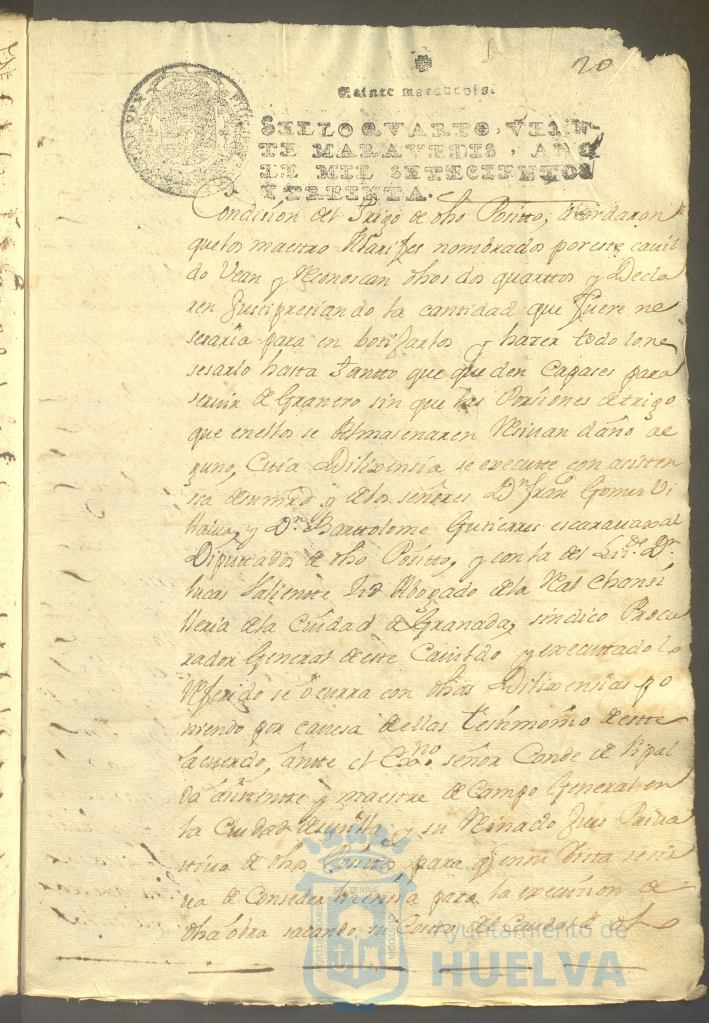 20
Veinte maravedis.
SELLO QVARTO, VEIN-
TE MARAVEDIS, AÑO
DE MIL SETECIENTOS
Y TREINTA.
Condision del trigo de dho Positto, acordaron
que los maestro Alarifes nombrados por este cavil
do Vean y Reconoscan dhos dos quarttos y Decla
ren Justipresiando la cantidad que fuere ne
sesaria para en hazer todo lo ne
sesario hasta tantto que queden capases para
servir de Granero sin que las Porsiones de trigo
que en ellos se Almasenaren Resivan daño al
guno, Cuia Dilixensia se executte con asisten
sia de su mrd y de los señores Dn. Fran.co Gomes Vi
y Dn. Barttolome Gutierres escaravaxal
Diputtados de dho Positto, y con la del Lizdo. Dn.
lucas Valientte Abogado de la Real Chansi
lleria de la Ciudad de Granada, sindico Procu
rador General de este Cavildo y executtado lo
Referido se ocurra con dhas Dilixensias po
niendo por cavesa de ellas testimonio de este
acuerdo, antte el Exmo. señor Conde de Ripal
da asistente y maestre de Campo General en
la Ciudad de sevilla y su Reinado Jues Priva
ttivo de dho Positto, para q en su Vista se sir
va de Conseder lisensia para la execusion de
dha obra sacando su Costto del Caudal de el
Ayuntamiento de
HUELVA